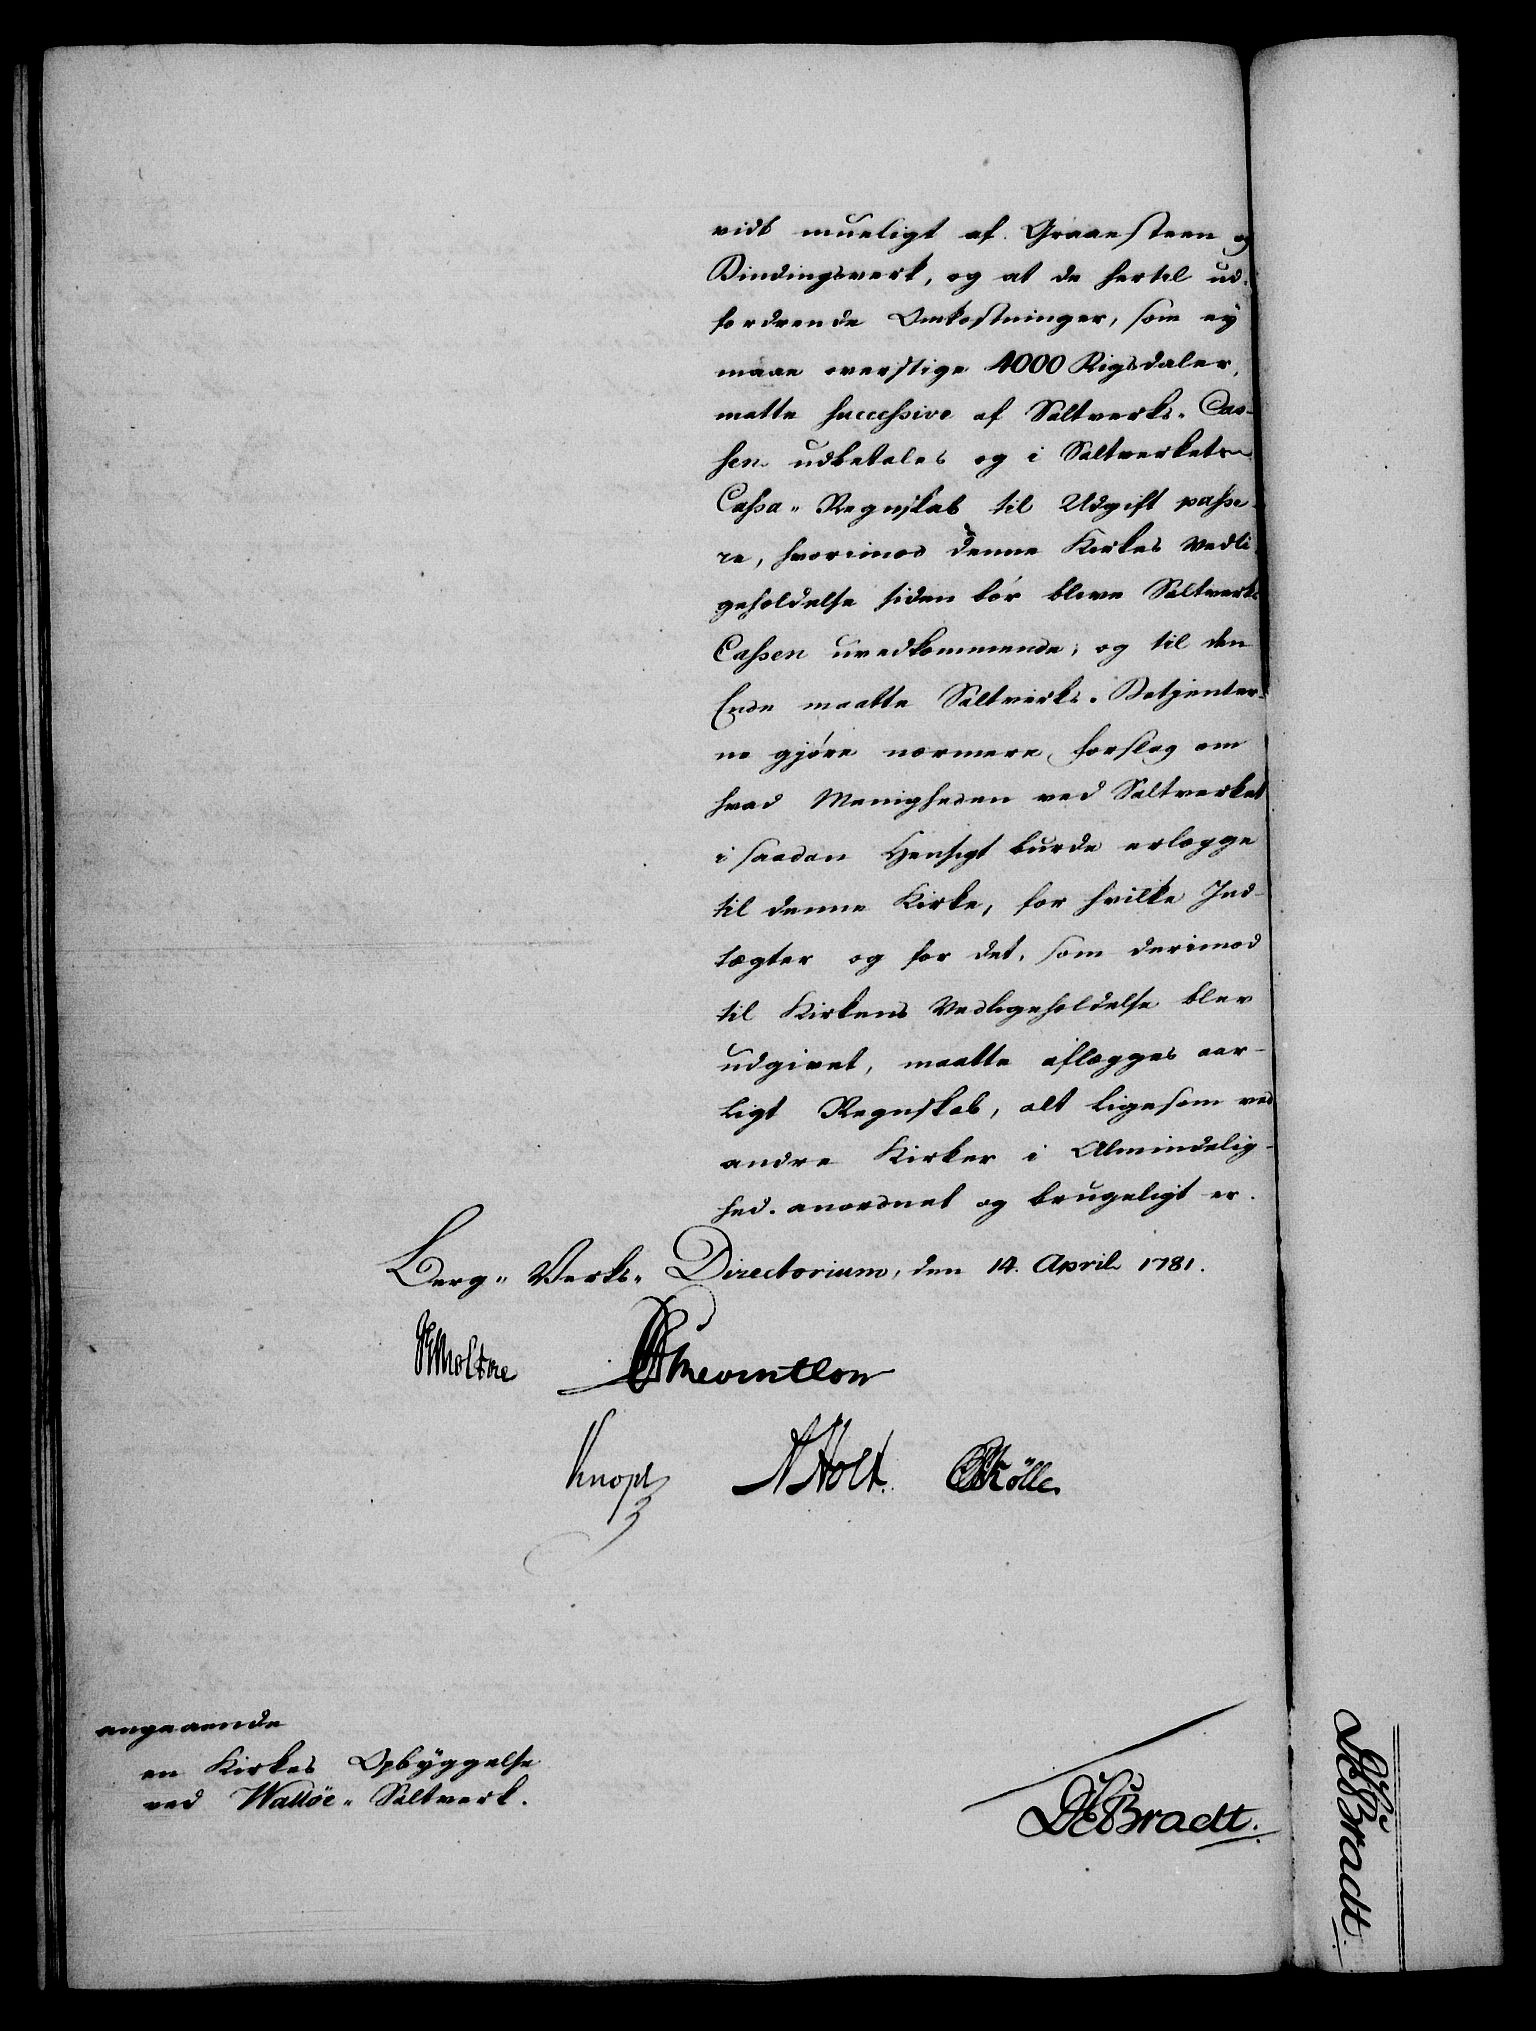 vidt mueligt af Graaesteen og
Bindingsverk, og at de hertil ud-
fordrende Omkostninger, som ej
maae overstige 4000 Rigsdaler,
matte successive af Saltverks-Cas-
sen udbetales og i Saltverkets
Cassa-Regnskab til Udgift passe-
re, hvorimod denne Kirkes Vedli-
geholdelse siden bør blive Saltverks
Cassen uvedkommende; og til den
Ende maatte Saltverks-Betjenter-
ne gjøre nærmere Forslag om
hvad Menigheden ved Saltverket
i saadan Hensigt burde erlægge
til denne Kirke, for hvilke Ind-
tægter og for det, som derimod
til Kirkens Vedligeholdelse blev
udgivet, maatte aflægges aar-
ligt Regnskab, alt ligesom ved
andre Kirker i Almindelig-
hed anordnet og brugeligt er.
Berg-Verks-Directorium, den 14. April 1781.
Moltke Reventlow
Knoph Holt Rölle
angaaende
en Kirkes Opbyggelse
ved Walløe-Saltverk.
Bradt.
Bradt.